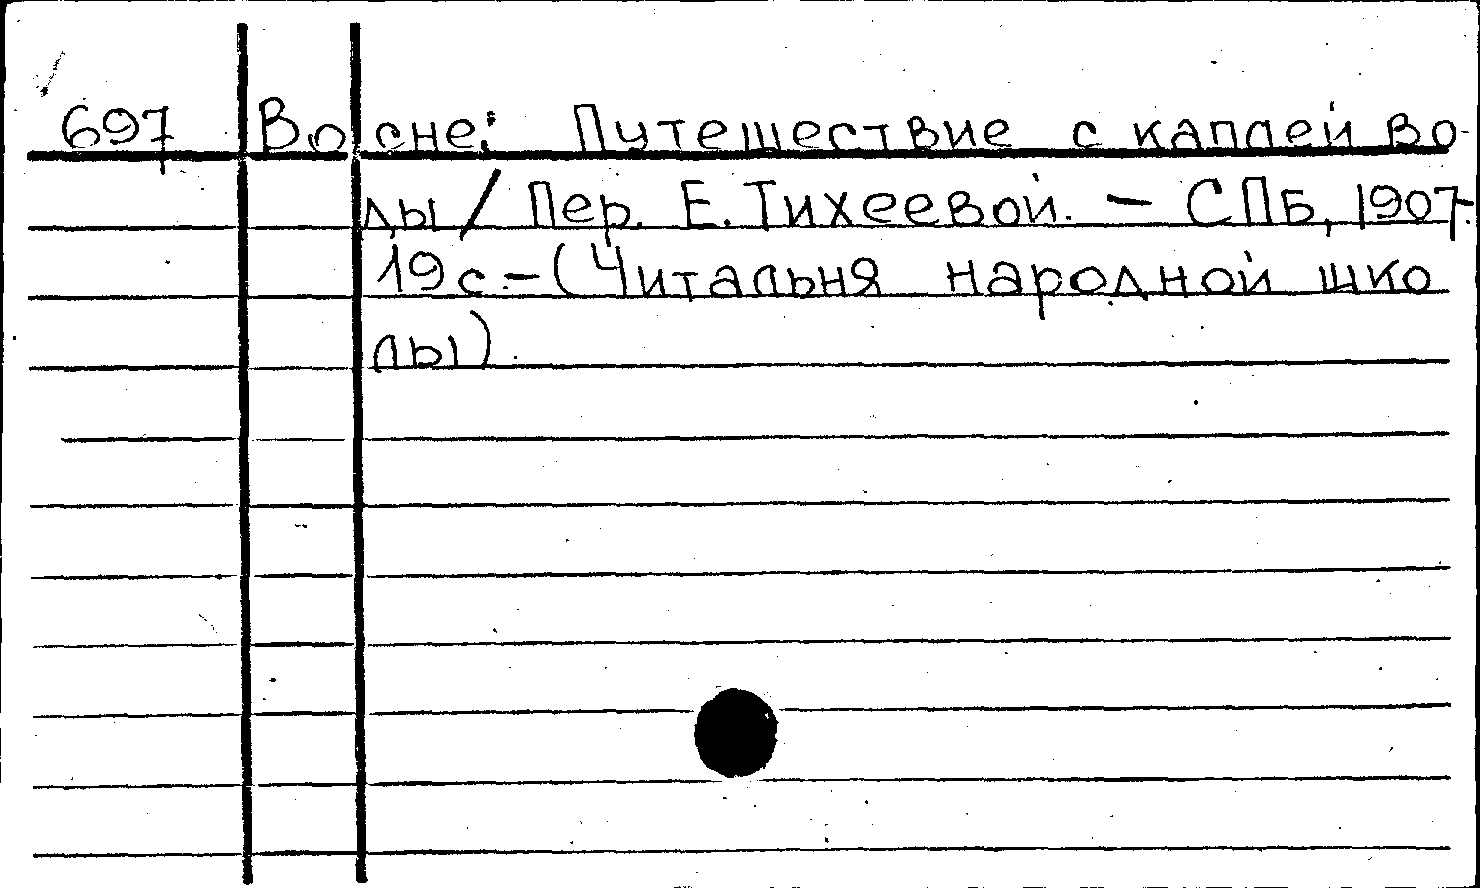 697 Во сне: Путешествие с каплей во-
ды / Пер. Е. Тихеевой. – СПБ, 1907.-
19с.-(Читальня народной шко
лы).